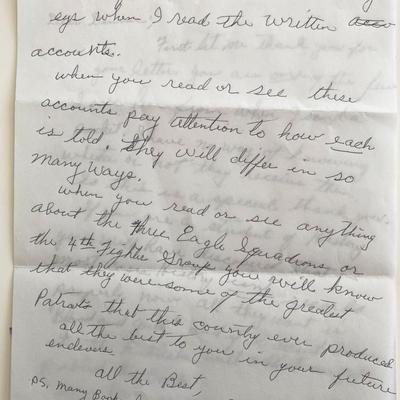 eys when I read the written
accounts.
when you read or see these
accounts pay attention to how each
is told. They will differ in so
many ways.
when you read or see anything
about the three Eagle Squadrons or
the 4th Fighter Group you will know
that they were some of the greatest
Patriots that this country ever produced
all the best to you in your future
endevers.
all the Best,
PS. many Book